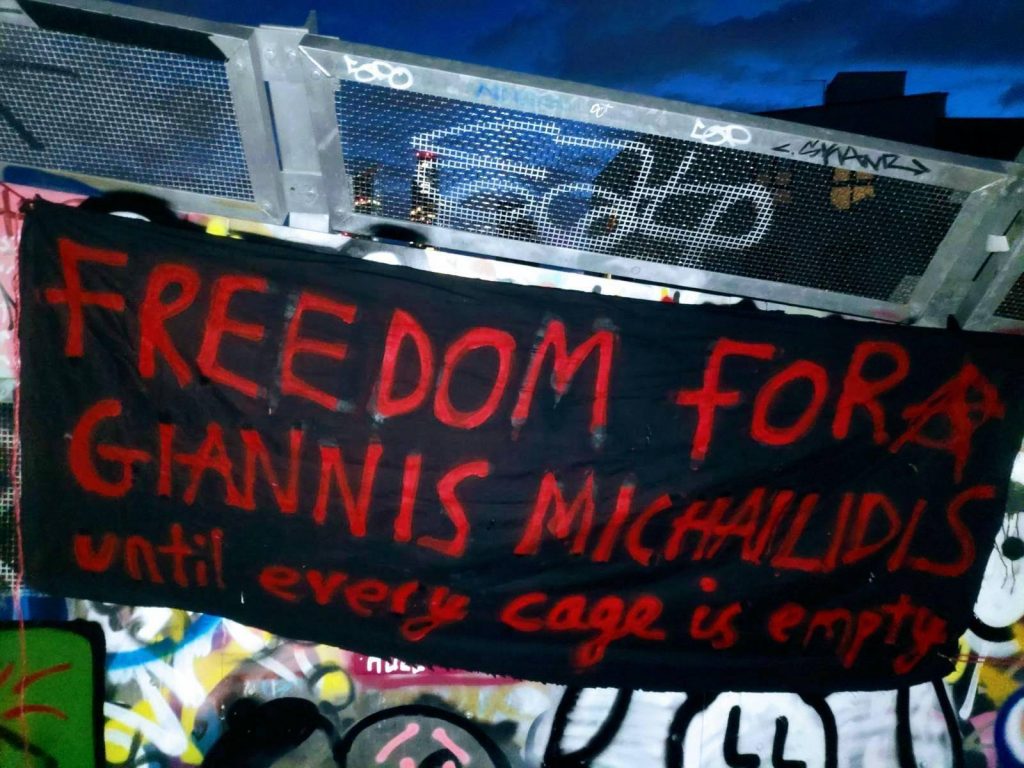 FREEDOM FOR
GIANNIS MICHAILIDIS
until every cage is empty